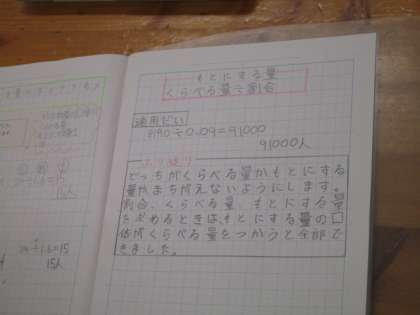 もとにする量
くらべる量÷割合
適用だい
8190÷0.09=91000
91000人
ふり返り
どっちがくらべる量かもとにする
量かまちがえないようにします。
割合、くらべる量、もとにする量
もとめるときはもとにする量の□
倍がくらべる量をつかうと全部で
きました。
24÷1.6=15
15人